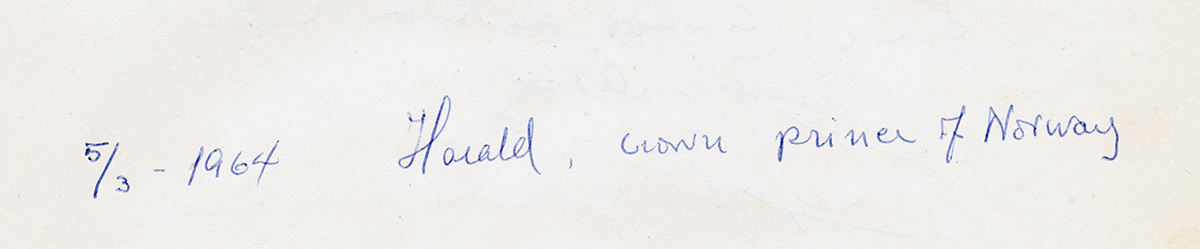 5/3 - 1964 Harald, crown prince of Norway